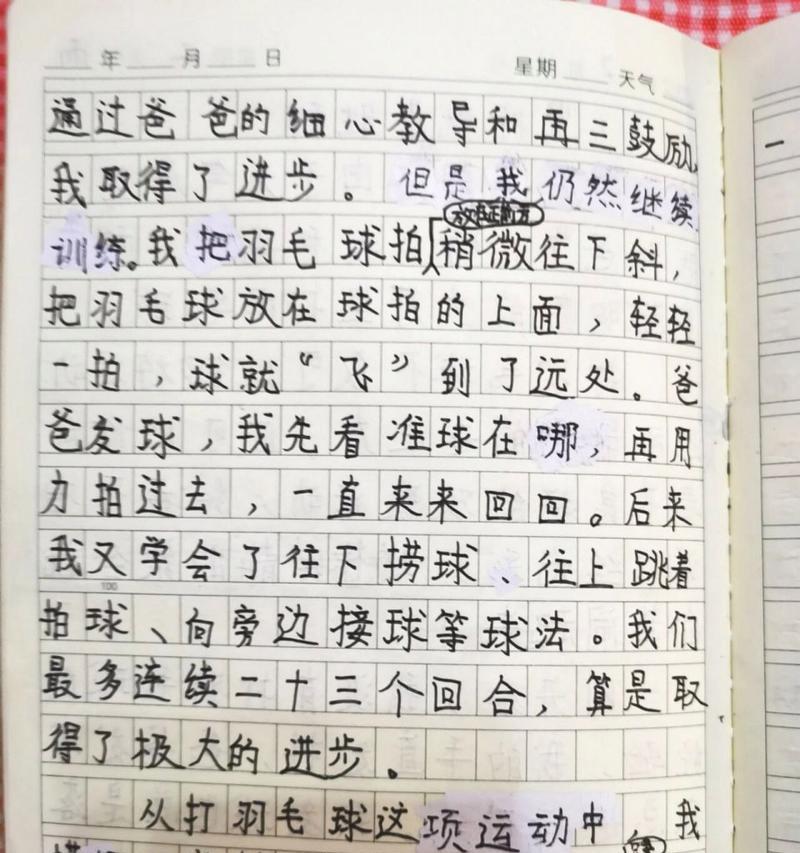 年 月 日 星期 天气
通过爸爸的细心教导和再三鼓励,
我取得了进步。但是我仍然继续
训练。我把羽毛球拍稍微往下斜,
把羽毛球放在球拍的上面,轻轻
一拍,球就“飞”到了远处。爸
爸发球,我先看准球在哪,再用
力拍过去,一直来来回回。后来
我又学会了往下捞球、往上跳着
100
拍球、向旁边接球等球法。我们
最多连续二十三个回合,算是取
得了极大的进步。
从打羽毛球这项运动中 我
一